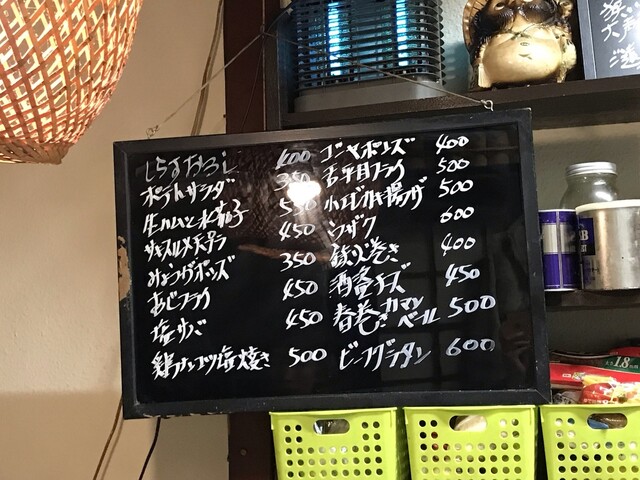 しらすおろし 400
ポテトサラダ 350
生ハムと水茄子 550
サキスルメ天プラ 450
みょうがポンズ 350
あじフライ 450
塩サバ 450
鶏ナンコツ塩焼き 500
ゴーヤポンズ 400
舌平目フライ 500
小エビかき揚ゲ 500
ウザク 600
鉄火巻き 400
酒盗チーズ 450
春巻きカマンベール 500
ビーフグラタン 600
1.8